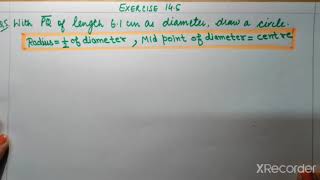 EXERCISE 14.5
Q3. With PQ of length 6.1 cm as diameter, draw a circle.
Radius = 1/2 of diameter, Mid point of diameter = centre
XRecorder